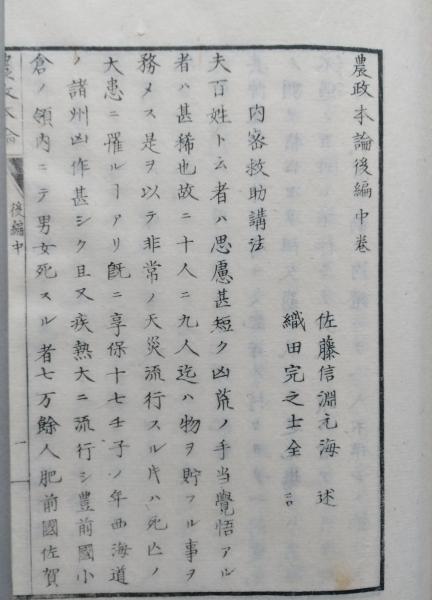 農政本論後編中巻
佐藤信淵元海 述
織田完之士全 訂
内密救助講法
夫百姓ト云者ハ思慮甚短ク凶荒ノ手当覺悟アル
者ハ甚稀也故ニ十人ニ九人迄ハ物ヲ貯フル事ヲ
務メス是ヲ以テ非常ノ天災流行スル片ハ死亡ノ
大患ニ罹ルヿアリ既ニ享保十七壬子ノ年西海道
ノ諸州凶作甚シク且又疾熱大ニ流行シ豊前國小
倉ノ領内ニテ男女死スル者七万餘人肥前國佐賀
農政本論
後編中
一